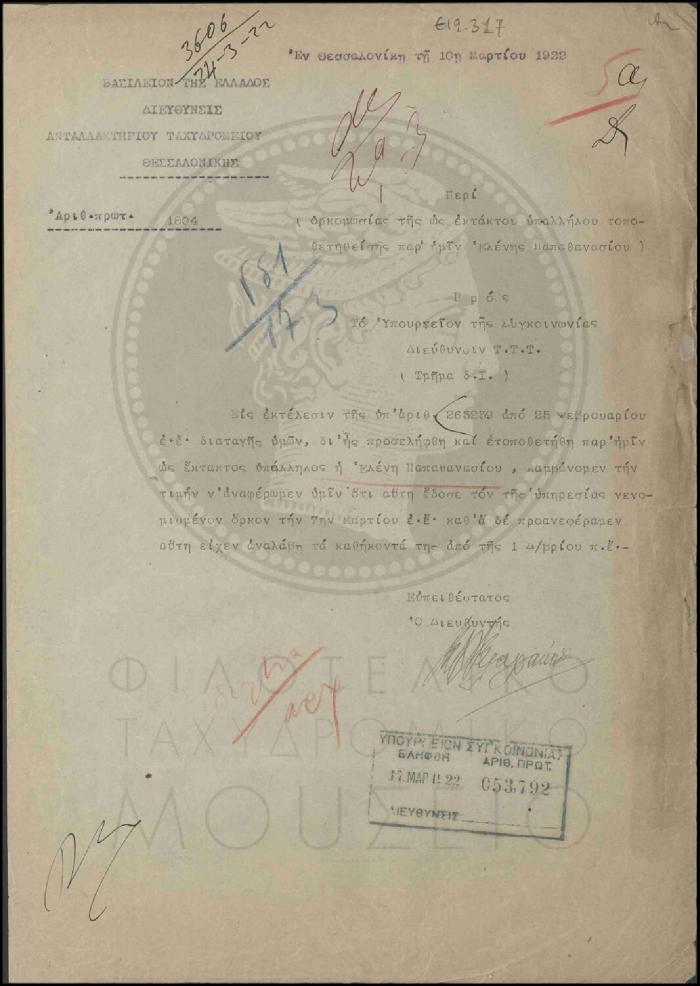 Ε19.317
3606
24-3-22
Ἐν Θεσσαλονίκῃ τῇ 10ῃ Μαρτίου 1922
ΒΑΣΙΛΕΙΟΝ ΤΗΣ ΕΛΛΑΔΟΣ
ΔΙΕΥΘΥΝΣΙΣ
ΑΝΤΑΛΛΑΚΤΗΡΙΟΥ ΤΑΧΥΔΡΟΜΕΙΟΥ
ΘΕΣΣΑΛΟΝΙΚΗΣ
Ἀριθ.πρωτ. 1804
Περί
( ὁρκομωσίας τῆς ὡς ἐκτάκτου ὑπαλλήλου τοπο-
θετηθείσης παρ'ἡμῖν Ἑλένης Παπαθανασίου )
181
17 3
Πρός
Τό Ὑπουργεῖον τῆς Συγκοινωνίας
Διεύθυνσιν Τ.Τ.Τ.
( Τμῆμα δ.Ι. )
Εἰς ἐκτέλεσιν τῆς ὑπ'ἀριθ. 263239 ἀπό 25 Φεβρουαρίου
ἐ.ἔ. διαταγῆς ὑμῶν, δι'ἧς προσελήφθη καί ἐτοποθετήθη παρ'ἡμῖν
ὡς ἔκτακτος ὑπάλληλος ἡ Ἑλένη Παπαθανασίου , λαμβάνομεν τήν
τιμήν ν'ἀναφέρωμεν ὑμῖν ὅτι αὕτη ἔδοσε τόν τῆς ὑπηρεσίας νενο-
μισμένον ὅρκον τήν 7ην Μαρτίου ἐ.ἔ. καθ'ἅ δέ προανεφέραμεν
αὕτη εἶχεν ἀναλάβῃ τά καθήκοντά της ἀπό τῆς 1 Δ/βρίου π.ἔ.-
Εὐπειθέστατος
Ὁ Διευθυντής
ΦΙΛΟΤΕΛΙΚΟ
ΤΑΧΥΔΡΟΜΙΚΟ
ΜΟΥΣΕΙΟ
ΥΠΟΥΡΓΕΙΟΝ ΣΥΓΚΟΙΝΩΝΙΑΣ
ΕΛΗΦΘΗ ΑΡΙΘ. ΠΡΩΤ.
17.ΜΑΡ.1922 053,792
ΔΙΕΥΘΥΝΣΙΣ